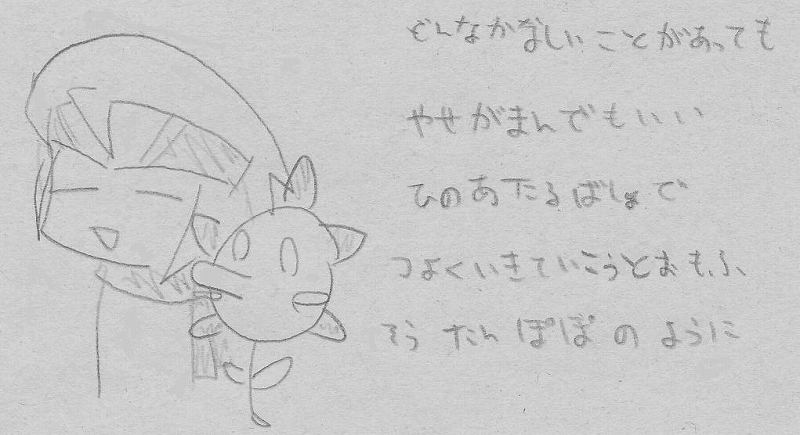 どんなかなしいことがあっても
やせがまんでもいい
ひのあたるばしょで
つよくいきていこうとおもふ
そう たんぽぽのように